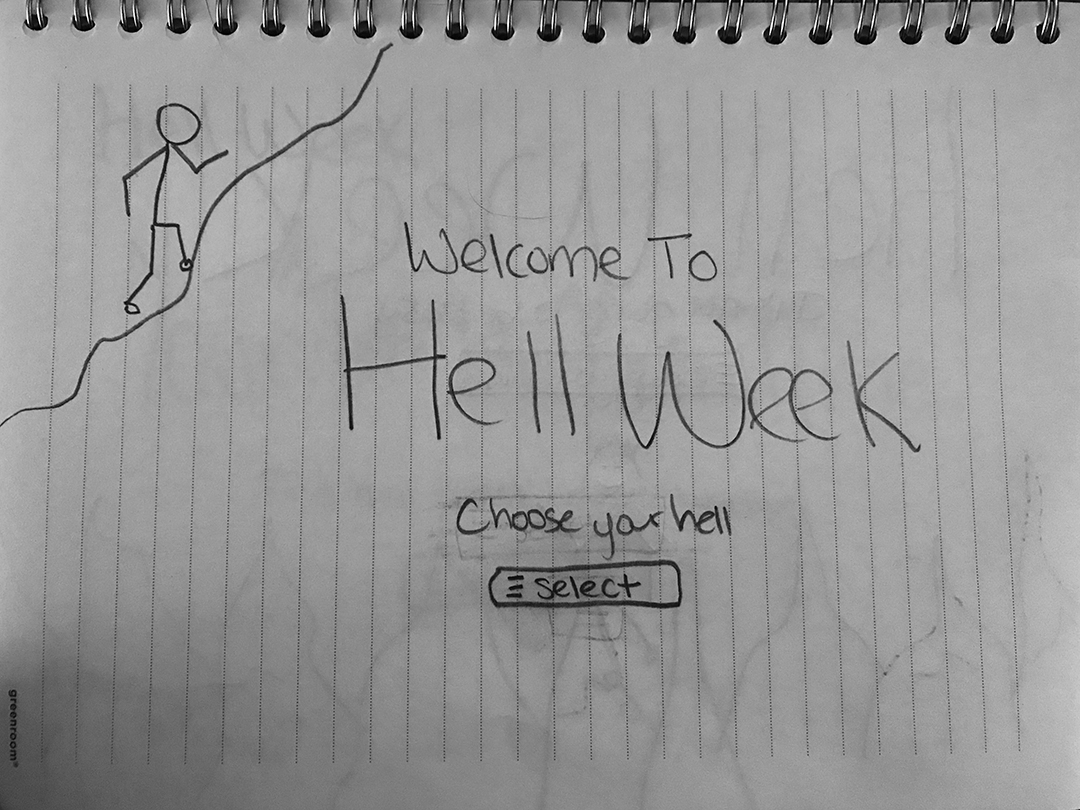 Welcome To
Hell Week
Choose your hell
select
greenroom